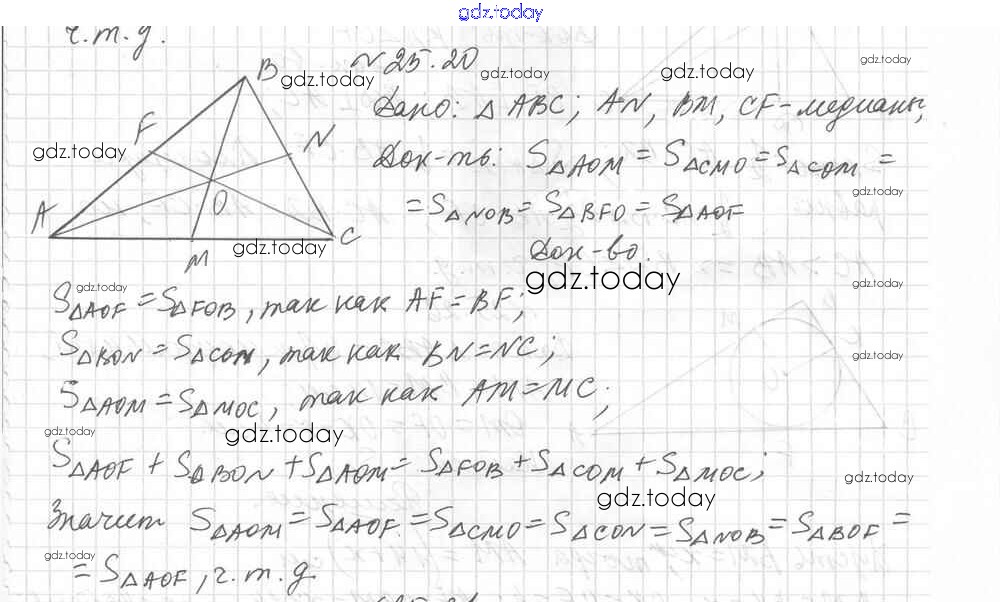 gdz.today
ч.т.д.
№ 25.20
B
gdz.today
gdz.today
gdz.today
gdz.today
Дано: △ ABC; AN, BM, CF - медианы;
F
N
gdz.today
Док-ть: S△AOM = S△CMO = S△COM =
gdz.today
= S△NOB = S△BFO = S△AOF
A
O
M
C
gdz.today
Док-во.
gdz.today
gdz.today
gdz.today
S△AOF = S△FOB, так как AF = BF;
S△BON = S△COM, так как BN = NC;
gdz.today
S△AOM = S△MOC, так как AM = MC;
gdz.today
gdz.today
S△AOF + S△BON + S△AOM = S△FOB + S△COM + S△MOC;
gdz.today
gdz.today
Значит S△AOM = S△AOF = S△CMO = S△CON = S△NOB = S△BOF =
gdz.today
gdz.today
= S△AOF, ч.т.д.